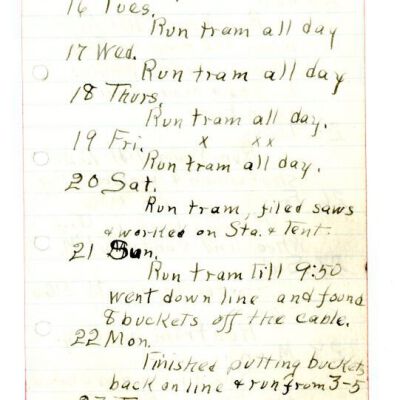 16 Tues.
Run tram all day
17 Wed.
Run tram all day
18 Thurs.
Run tram all day.
19 Fri. x xx
Run tram all day.
20 Sat.
Run tram, filed saws
& worked on Sta. & Tent.
21 Sun.
Run tram till 9:50
went down line and found
8 buckets off the cable.
22 Mon.
Finished putting buckets
back on line & run from 3-5